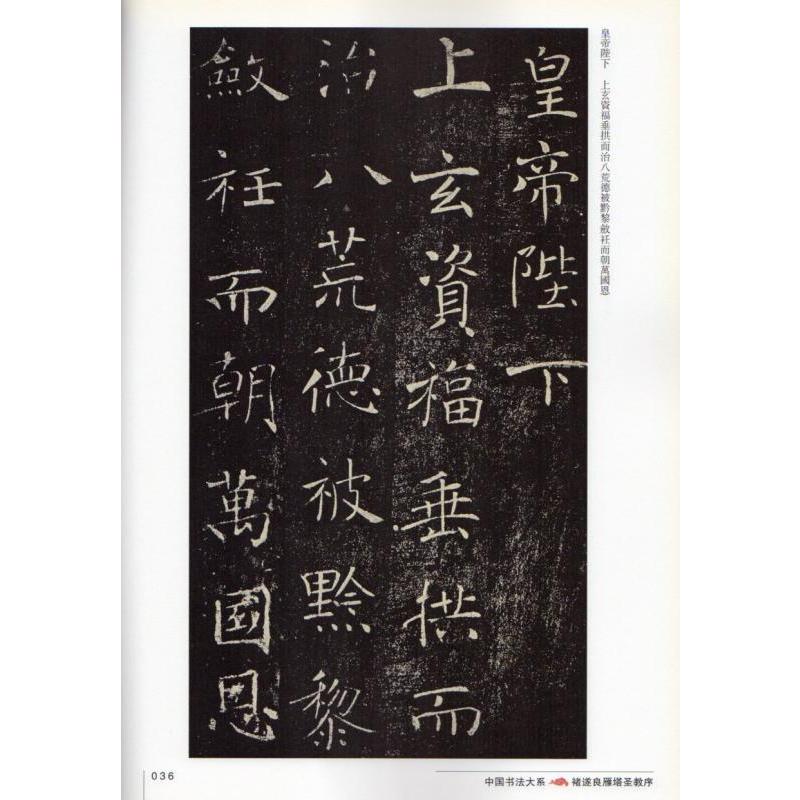 皇帝陛下
上玄資福垂拱而
治八荒德被黔黎
斂衽而朝萬國恩
皇帝陛下　上玄資福垂拱而治八荒德被黔黎斂衽而朝萬國恩
036
中国书法大系 褚遂良雁塔圣教序